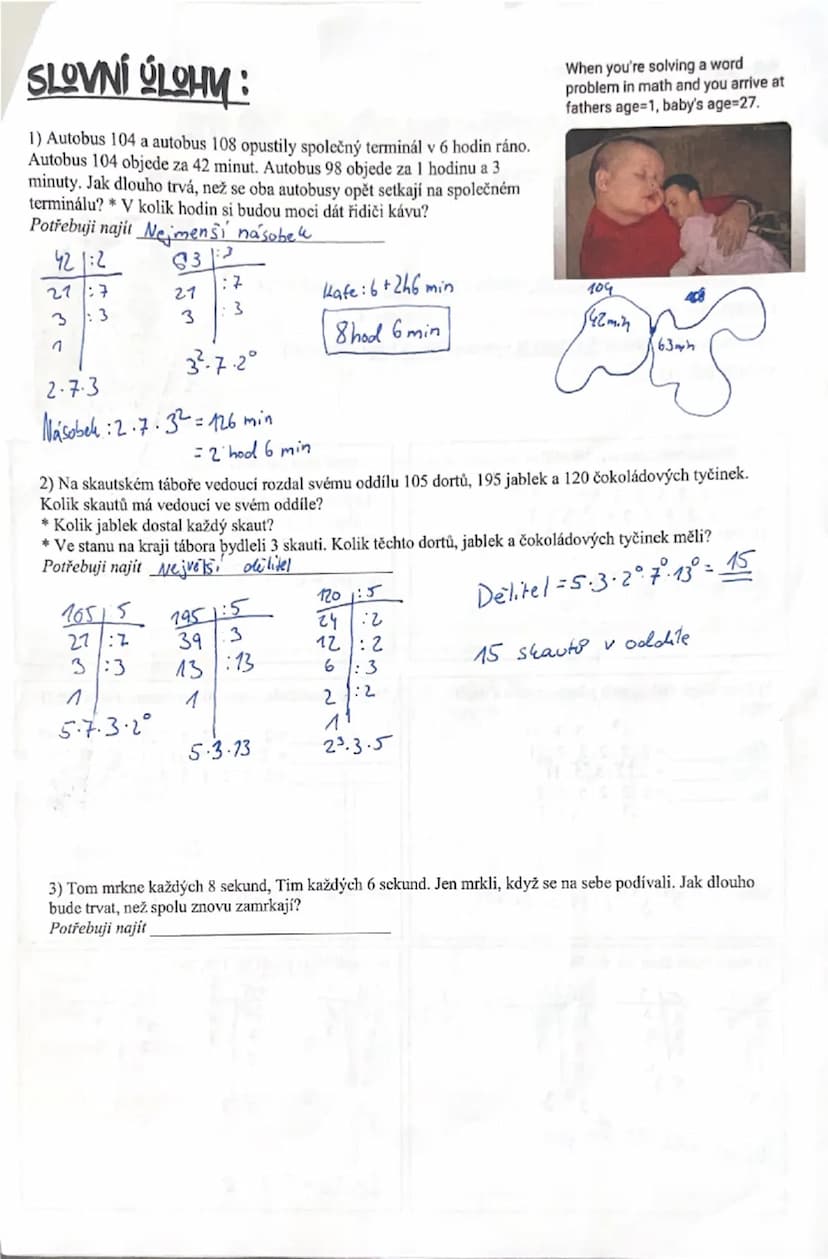 SLOVNÍ ÚLOHY:
When you're solving a word
problem in math and you arrive at
fathers age=1, baby's age=27.
1) Autobus 104 a autobus 108 opustily společný terminál v 6 hodin ráno.
Autobus 104 objede za 42 minut. Autobus 98 objede za 1 hodinu a 3
minuty. Jak dlouho trvá, než se oba autobusy opět setkají na společném
terminálu? * V kolik hodin si budou moci dát řidiči kávu?
Potřebuji najít Nejmenší násobek
42 :2
21 :7
3 :3
1
2·7·3
63 :3
21 :7
3 :3
3²·7·2⁰
Kafe: 6 + 2h6 min
8 hod 6 min
104
42 min
108
63 min
Násobek: 2·7·3² = 126 min
= 2 hod 6 min
2) Na skautském táboře vedoucí rozdal svému oddílu 105 dortů, 195 jablek a 120 čokoládových tyčinek.
Kolik skautů má vedoucí ve svém oddíle?
* Kolik jablek dostal každý skaut?
* Ve stanu na kraji tábora bydleli 3 skauti. Kolik těchto dortů, jablek a čokoládových tyčinek měli?
Potřebuji najít Největší dělitel
105 5
21 :7
3 :3
1
5·7·3·2⁰
195 :5
39 3
13 :13
1
5·3·13
120 :5
24 :2
12 :2
6 :3
2 :2
1
2³·3·5
Dělitel = 5·3·2⁰·7⁰·13⁰ = 15
15 skautů v oddíle
3) Tom mrkne každých 8 sekund, Tim každých 6 sekund. Jen mrkli, když se na sebe podívali. Jak dlouho
bude trvat, než spolu znovu zamrkají?
Potřebuji najít